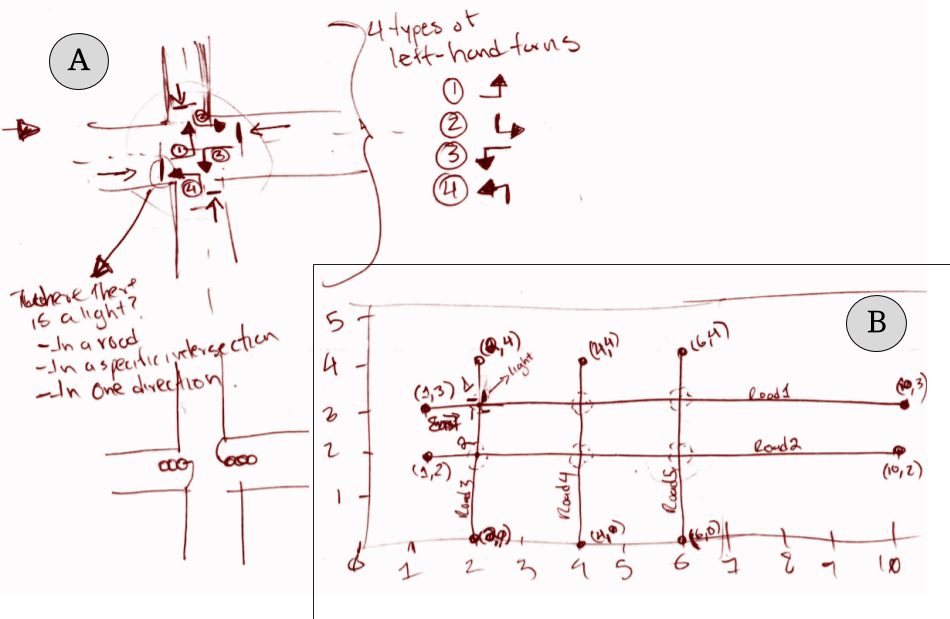 A
4 types of
left-hand turns
1
2
3
4
2
1
3
4
where there
is a light?
-In a road
-In a specific intersection
-In one direction.
B
5
4
3
2
1
(2,4)
(4,4)
(6,4)
light
(1,3)
East
Road1
(10,3)
(1,2)
Road2
(10,2)
Road3
Road4
Road5
(4,0)
(6,0)
0 1 2 3 4 5 6 7 8 9 10